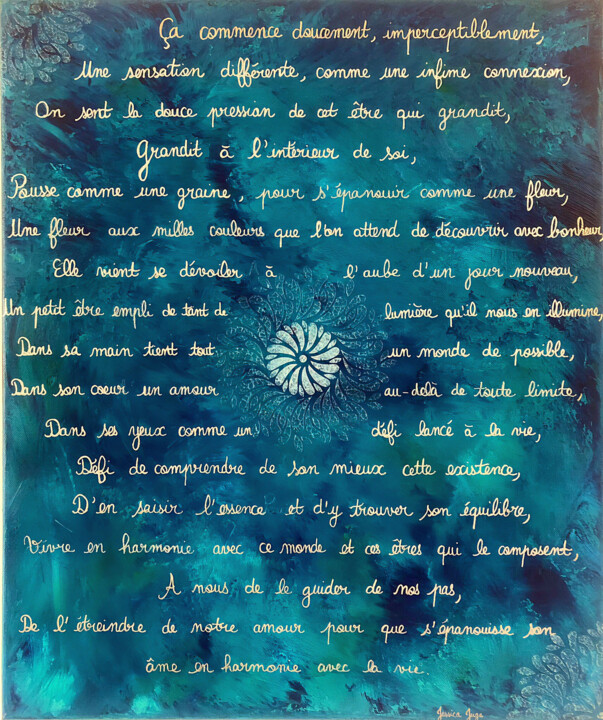 Ça commence doucement, imperceptiblement,
Une sensation différente, comme une infime connexion,
On sent la douce pression de cet être qui grandit,
Grandit à l'intérieur de soi,
Pousse comme une graine, pour s'épanouir comme une fleur,
Une fleur aux milles couleurs que l'on attend de découvrir avec bonheur,
Elle vient se dévoiler à l'aube d'un jour nouveau,
Un petit être empli de tant de lumière qu'il nous en illumine,
Dans sa main tient tout un monde de possible,
Dans son coeur un amour au-delà de toute limite,
Dans ses yeux comme un défi lancé à la vie,
Défi de comprendre de son mieux cette existence,
D'en saisir l'essence et d'y trouver son équilibre,
Vivre en harmonie avec ce monde et ces êtres qui le composent,
A nous de le guider de nos pas,
De l'étreindre de notre amour pour que s'épanouisse son
âme en harmonie avec la vie.
Jessica